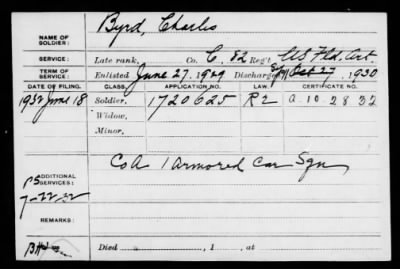 NAME OF SOLDIER: Byrd, Charles
SERVICE: Late rank, Co. C, 82 Reg't US Fld. Art.
TERM OF SERVICE: Enlisted June 27, 1929 Discharged Oct 27, 1930
DATE OF FILING. CLASS. APPLICATION NO. LAW. CERTIFICATE NO.
1932 June 18 Soldier, 1720625 R2 A-10-28-32
Widow,
Minor,
Co A 1 Armored Car Sqn
ADDITIONAL SERVICES:
7-22-32
REMARKS:
Died , 1 , at